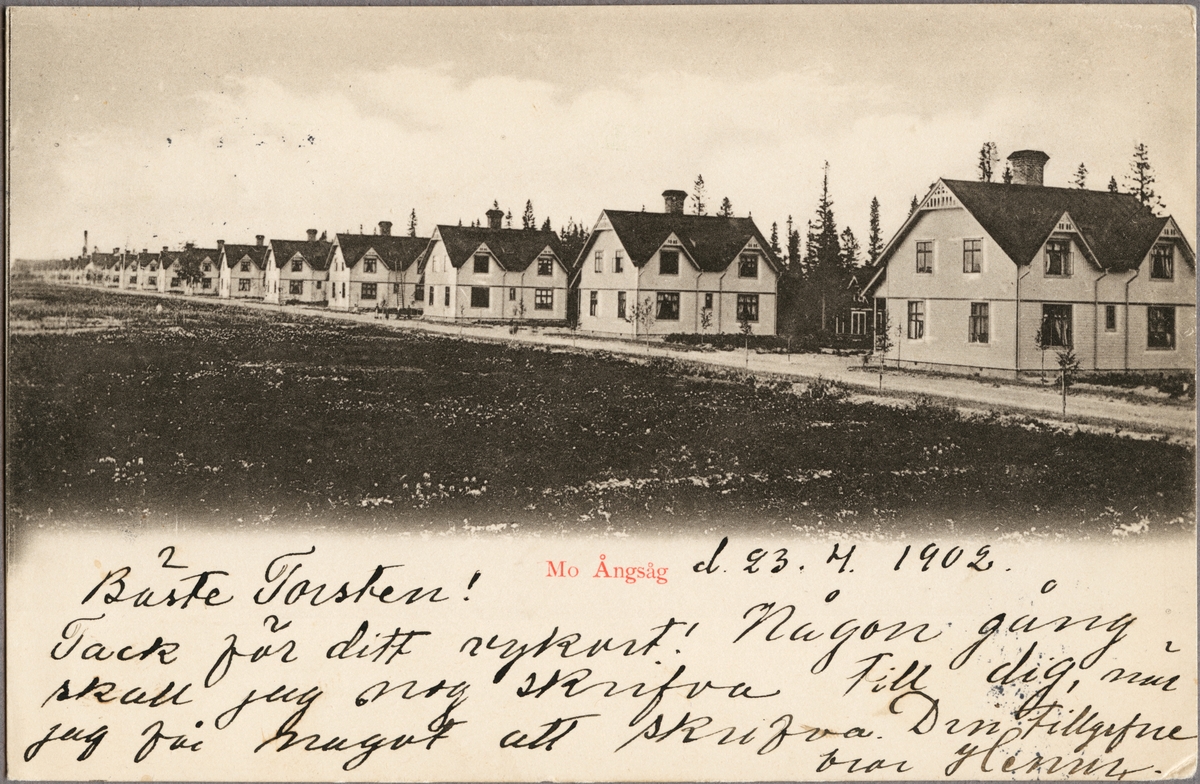 Mo Ångsåg
d. 23. 4. 1902.
Bäste Torsten!
Tack för ditt vykort! Någon gång
skall jag nog skrifva till dig, när
jag får något att skrifva. Din tillgifne
bror